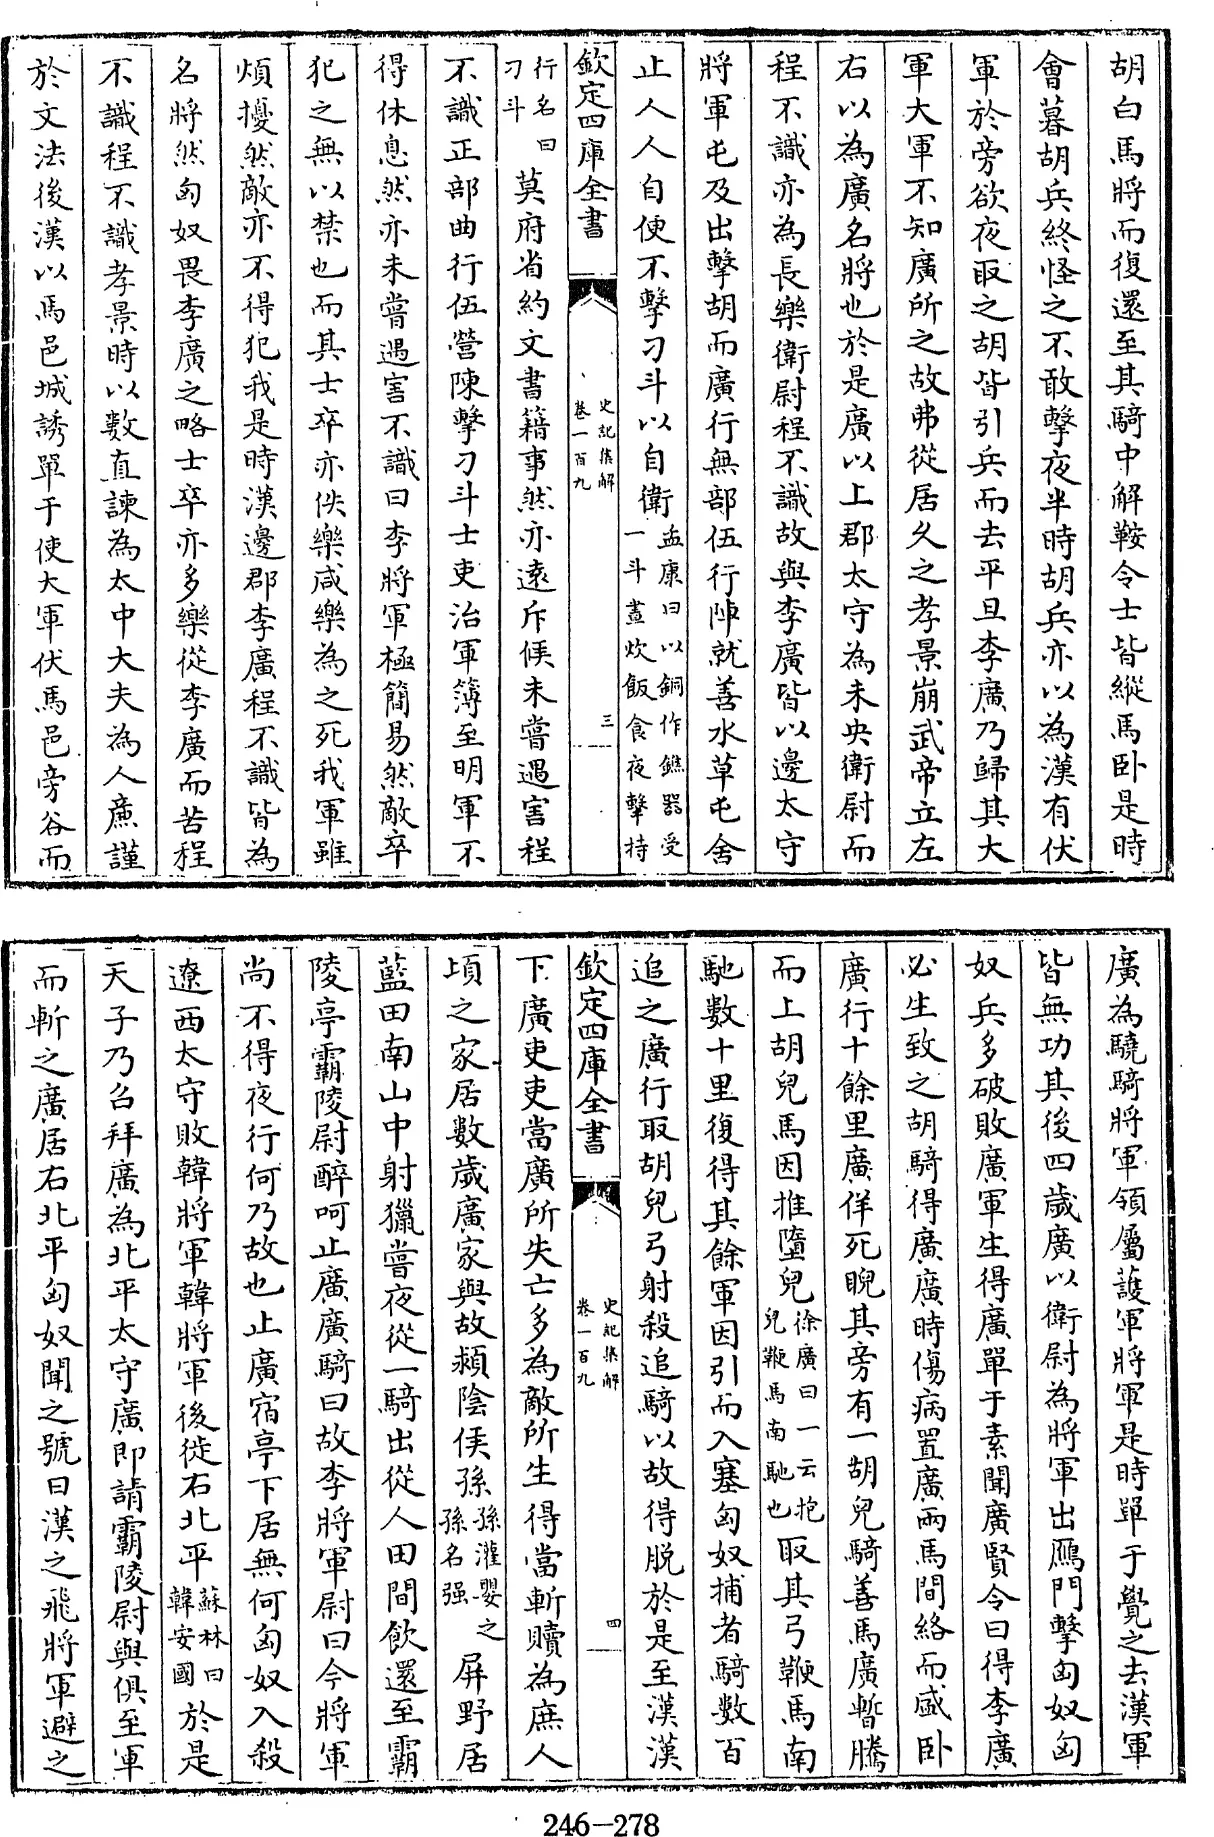 胡白馬將而復還至其騎中解鞍令士皆縱馬卧是時
會暮胡兵終怪之不敢擊夜半時胡兵亦以為漢有伏
軍於旁欲夜取之胡皆引兵而去平旦李廣乃歸其大
軍大軍不知廣所之故弗從居久之孝景崩武帝立左
右以為廣名將也於是廣以上郡太守為未央衛尉而
程不識亦為長樂衛尉程不識故與李廣皆以邊太守
將軍屯及出擊胡而廣行無部伍行陣就善水草屯舍
止人人自便不擊刁斗以自衛孟康曰以銅作鐎器受一斗晝炊飯食夜擊持
欽定四庫全書
史記集解
卷一百九
三
行名曰刁斗莫府省約文書籍事然亦遠斥候未嘗遇害程
不識正部曲行伍營陳擊刁斗士吏治軍簿至明軍不
得休息然亦未嘗遇害不識曰李將軍極簡易然敵卒
犯之無以禁也而其士卒亦佚樂咸樂為之死我軍雖
煩擾然敵亦不得犯我是時漢邊郡李廣程不識皆為
名將然匈奴畏李廣之略士卒亦多樂從李廣而苦程
不識程不識孝景時以數直諫為太中大夫為人廉謹
於文法後漢以馬邑城誘單于使大軍伏馬邑旁谷而
廣為驍騎將軍領屬護軍將軍是時單于覺之去漢軍
皆無功其後四歲廣以衛尉為將軍出鴈門擊匈奴匈
奴兵多破敗廣軍生得廣單于素聞廣賢令曰得李廣
必生致之胡騎得廣廣時傷病置廣兩馬間絡而盛卧
廣行十餘里廣佯死睨其旁有一胡兒騎善馬廣暫騰
而上胡兒馬因推墮兒徐廣曰一云抱兒鞭馬南馳也取其弓鞭馬南
馳數十里復得其餘軍因引而入塞匈奴捕者騎數百
追之廣行取胡兒弓射殺追騎以故得脱於是至漢漢
欽定四庫全書
史記集解
卷一百九
四
下廣吏吏當廣所失亡多為敵所生得當斬贖為庶人
頃之家居數歲廣家與故潁陰侯孫孫灌嬰之孫名强屏野居
藍田南山中射獵嘗夜從一騎出從人田間飲還至霸
陵亭霸陵尉醉呵止廣廣騎曰故李將軍尉曰今將軍
尚不得夜行何乃故也止廣宿亭下居無何匈奴入殺
遼西太守敗韓將軍韓將軍後徙右北平蘇林曰韓安國於是
天子乃召拜廣為北平太守廣即請霸陵尉與俱至軍
而斬之廣居右北平匈奴聞之號曰漢之飛將軍避之
246—278